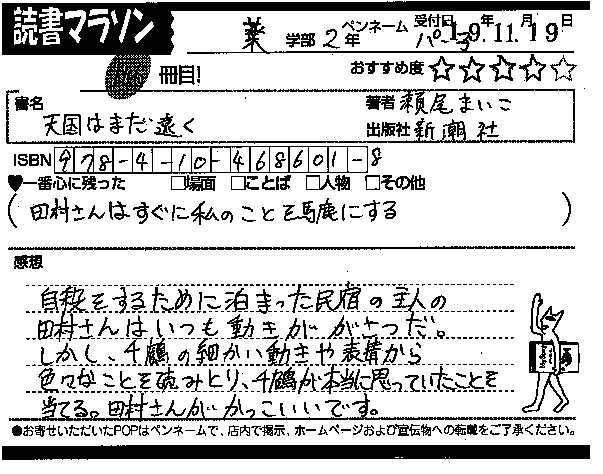 読書マラソン
薬 学部 2年
ペンネーム パー子
受付日 '09年11月19日
冊目!
おすすめ度 ☆☆☆☆☆
書名 天国はまだ遠く
著者 瀬尾まいこ
出版社 新潮社
ISBN 978-4-10-468601-8
♥一番心に残った □場面 □ことば □人物 □その他
(田村さんはすぐに私のことを馬鹿にする)
感想
自殺をするために泊まった民宿の主人の
田村さんはいつも動きががさつだ。
しかし、千鶴の細かい動きや表情から
色々なことを読みとり、千鶴が本当に思っていたことを
当てる。田村さんがかっこいいです。
●お寄せいただいたPOPはペンネームで、店内で掲示、ホームページおよび宣伝物への転載をご了承ください。